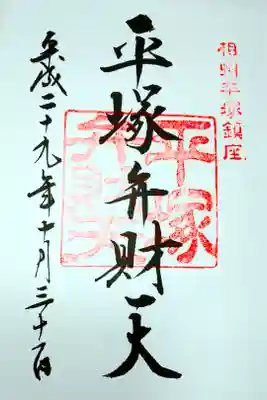 相州平塚鎮座
平塚弁財天
平塚弁財天
平成二十九年十月三十一日